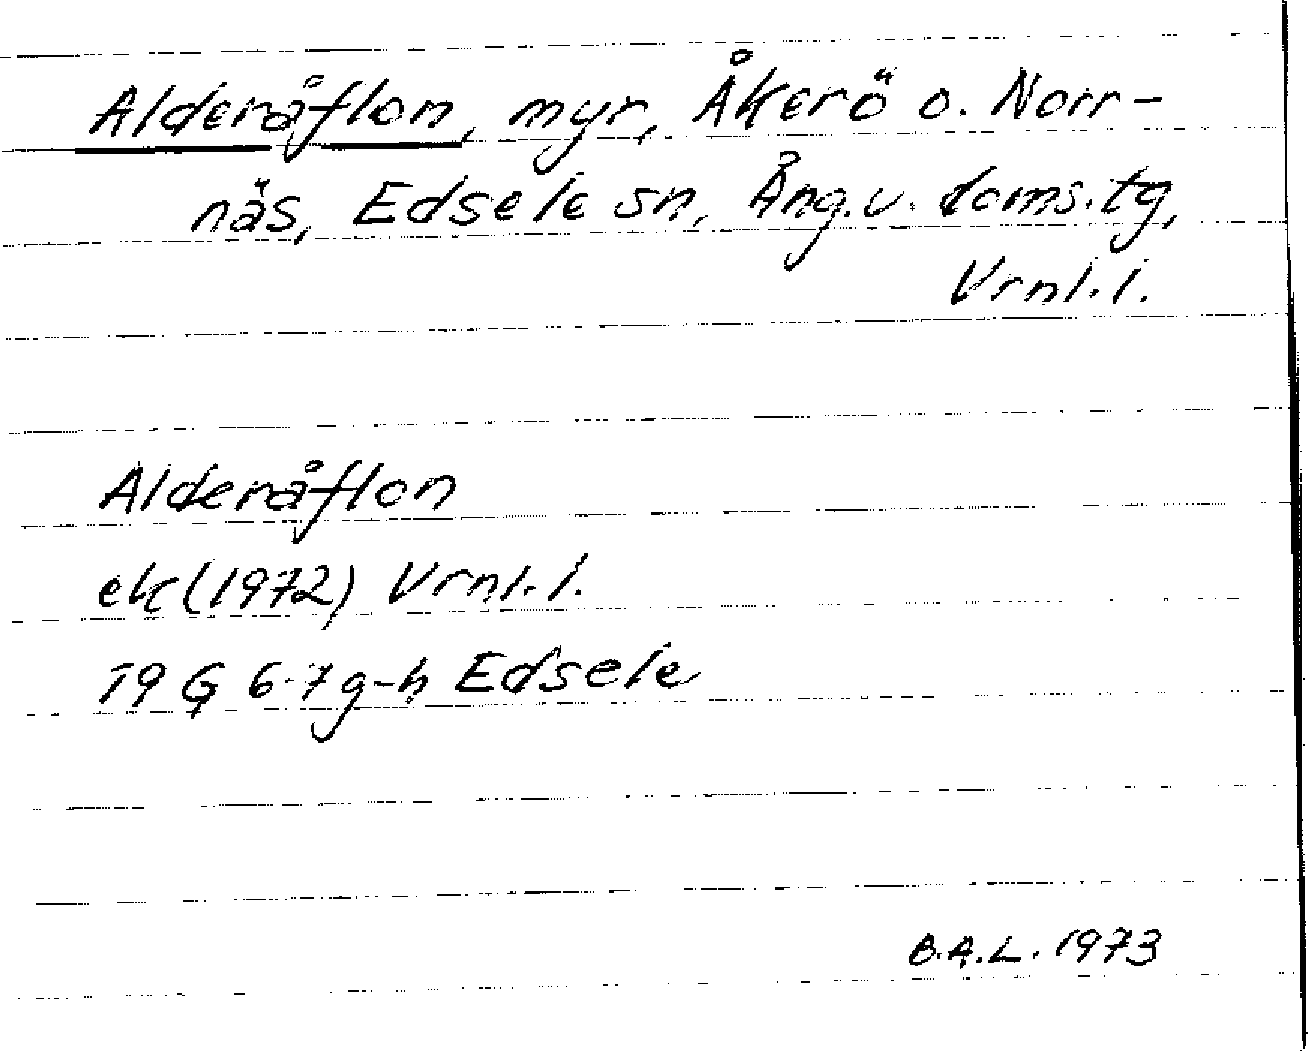 Alderåflon, myr, Åkerö o. Norr-
näs, Edsele sn, Ång.v. doms.tg,
Vrnl.l.
Alderåflon
ek(1972) Vrnl.l.
19 G 6-7g-h Edsele
B.A.L. 1973